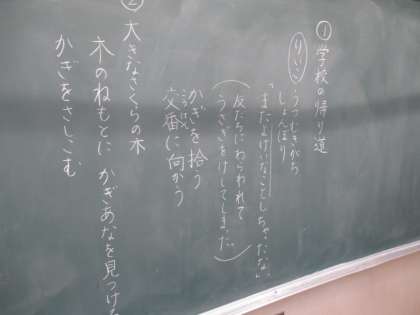 ①学校の帰り道
りいこ
うつむきがち
しょんぼり
「またよけいなことしちゃったな。」
(友だちにわらわれて
うさぎをけしてしまった。)
かぎを拾う
交番に向かう
こうばん
②大きなさくらの木
木のねもとに かぎあなを見つける
かぎをさしこむ